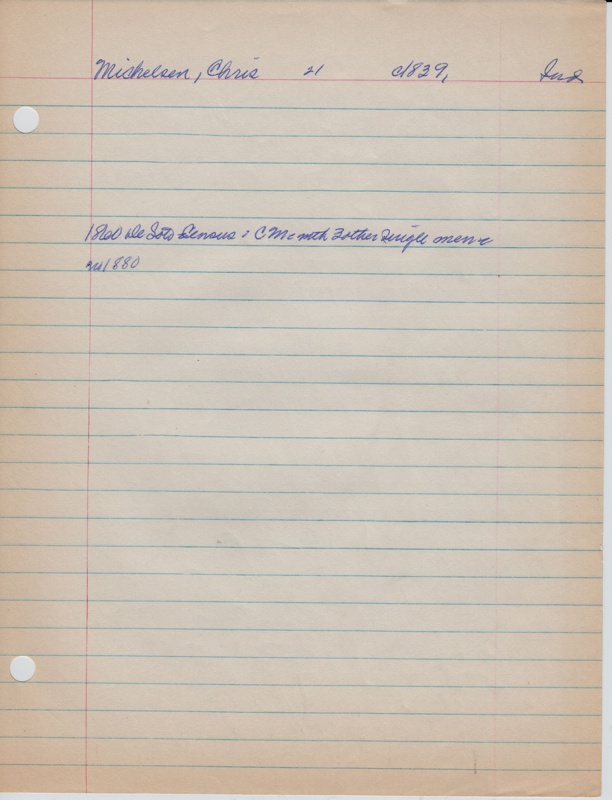 Mickelsen, Chris 21 c1839, Ind
1860 De Soto Census: C M with 7 other single men
1880